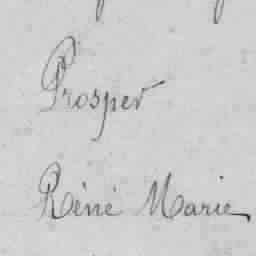 Prosper
Réné Marie